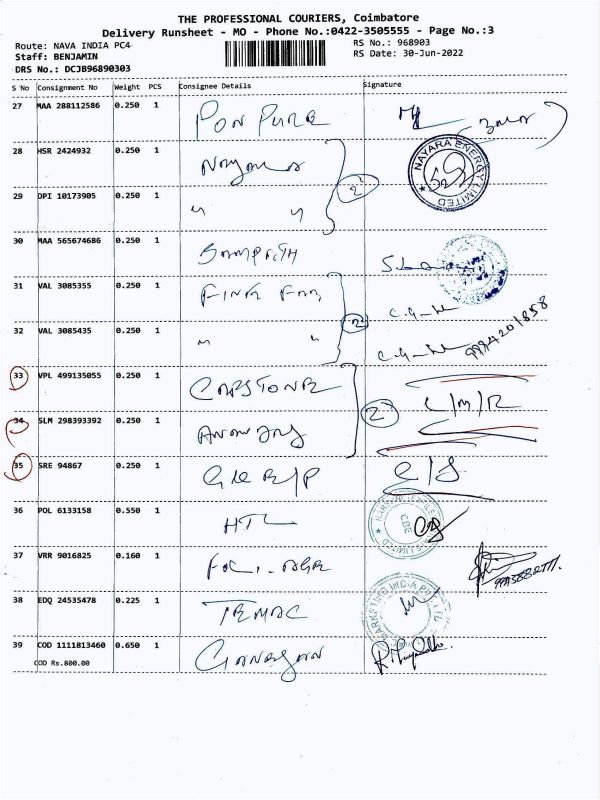 THE PROFESSIONAL COURIERS, Coimbatore
Delivery Runsheet - MO - Phone No.:0422-3505555 - Page No.:3
Route: NAVA INDIA PC4
RS No.: 968903
Staff: BENJAMIN
RS Date: 30-Jun-2022
DRS No.: DCJB96890303
S No Consignment No Weight PCS Consignee Details Signature
27 MAA 288112586 0.250 1 PON PURE
28 HSR 2424932 0.250 1 Nayara
NAYARA ENERGY LIMITED
29 DPI 10173905 0.250 1 " " 2
30 MAA 565674686 0.250 1 SAMPATH
31 VAL 3085355 0.250 1
32 VAL 3085435 0.250 1 " " 2 9994201858
33 VPL 499135055 0.250 1 CAPSTONE L/M/R
34 SLM 298393392 0.250 1 2
35 SRE 94867 0.250 1 C/S
36 POL 6133158 0.550 1 HTL
CBE
37 VRR 9016825 0.160 1
38 EDQ 24535478 0.225 1 TEMAC
MARKETING INDIA PVT LTD
39 COD 1111813460 0.650 1
COD Rs.800.00